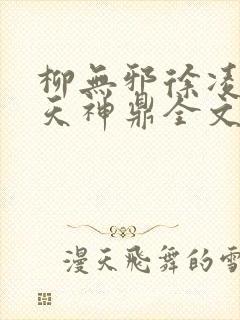 柳無邪徐凌
天神鼎全文
漫天飛舞的雪